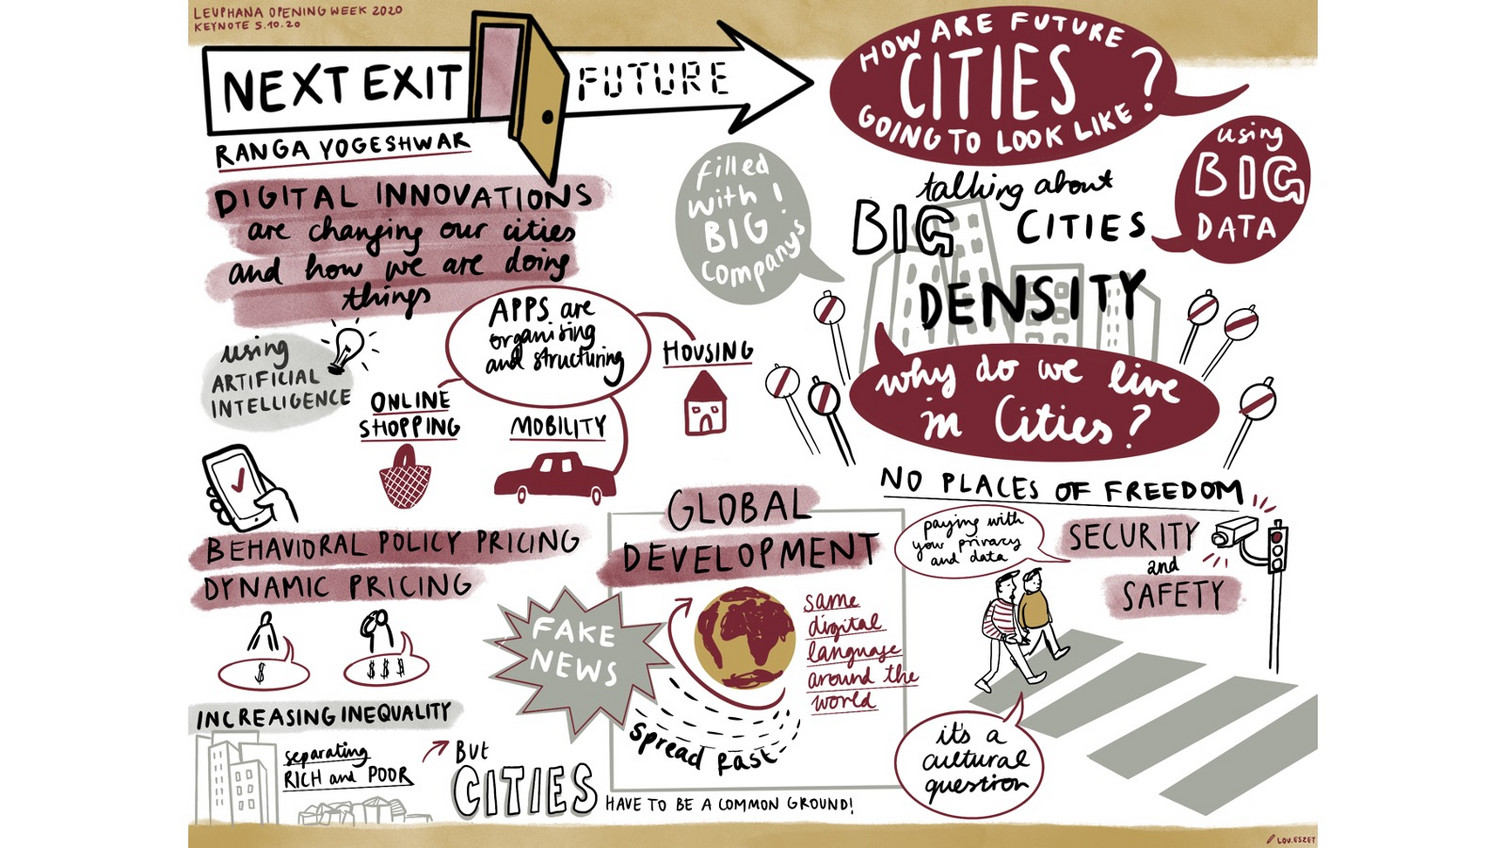 LEUPHANA OPENING WEEK 2020
KEYNOTE 5.10.20
NEXT EXIT FUTURE
RANGA YOGESHWAR
DIGITAL INNOVATIONS
are changing our cities
and how we are doing
things
using
ARTIFICIAL
INTELLIGENCE
APPS are
organising
and structuring
ONLINE
SHOPPING
MOBILITY
HOUSING
BEHAVIORAL POLICY PRICING
DYNAMIC PRICING
$
$$$
INCREASING INEQUALITY
separating
RICH and POOR
BUT
CITIES
HAVE TO BE A COMMON GROUND!
GLOBAL
DEVELOPMENT
FAKE
NEWS
spread fast
same
digital
language
around the
world
HOW ARE FUTURE
CITIES ?
GOING TO LOOK LIKE
filled
with !
BIG
companys
talking about
BIG CITIES
DENSITY
using
BIG
DATA
why do we live
in Cities?
NO PLACES OF FREEDOM
paying with
your privacy
and data
SECURITY
and
SAFETY
it's a
cultural
question
LOU.ESZET